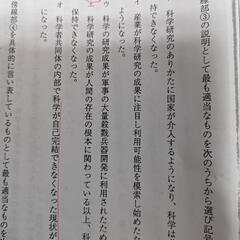 傍線部③の説明として最も適当なものを次のうちから選び記号
科学研究のありかたに国家が介入するようになり、科学は
持できなくなった。
産業が科学研究の成果に注目し利用可能性を模索し始め
ようになった。
ウ 科学研究の成果が軍事の大量殺数兵器開発に利用されたため
できなくなった。
科学研究の成果が人間の存在の根本に関わっている以上、科
持できなくなった。
オ 科学者共同体の内部で科学が自己完結できなくなった現状が
傍線部④を具体的に言い表しているものとして最も適当なものを